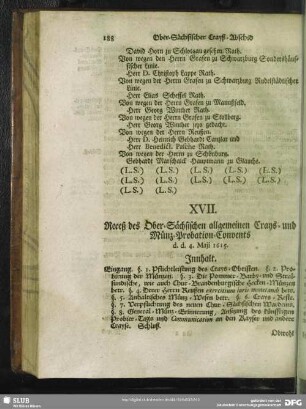 188 Ober-Sächsischer Crayß-Abschied
David Horn zu Schlotzau gesehen Rath.
Von wegen den Herrn Grafen zu Schwartzburg Sondershäusischer Linie.
Herr D. Christoph Lappe Rath.
Von wegen der Herrn Grafen zu Schwartzburg Rudelstädtischer
Linie.
Herr Scheffel Rath.
Von wegen der Herrn Grafen zu Mannßfeld,
Herr Georg Winther Rath.
Von wegen der Herrn Grafen zu Stollberg.
Herr Georg Winther jetzt gedacht.
Von wegen der Herrn Reußen.
Herr D. Heinrich Gebhardt Cantzlar und
Herr Benedict. Rath.
Von wegen der Herrn zu Schönburg.
Gebhardt Marschall Hauptmann zu Glaucha.
(L.S.) (L.S.) (L.S.) (L.S.) (L.S.)
(L.S.) (L.S.) (L.S.) (L.S.) (L.S.)
(L.S.) (L.S.)
XVII.
Receß des Ober-Sächsischen allgemeinen Crays- und
Müntz-Probation-Convents
d. d. 4. Maji 1615.
Innhalt.
Eingang. §. 1. Pflichtleistung des Crays-Obristen. §. 2. Probirung der Müntzen. §. 3. Die Pommer-Barby- und
wie auch Chur-Brandenburgische Hecken-Müntzen
§. 4. Derer Herrn Reussen exercitium juris monetandi
§. 5. Anhaltisches Müntz-Wesen betr. §. 6. Crays-Reste.
§. 7. Verpflichtung des neuen Chur-Sächsischen Wardeins.
§. 8. General-Müntz-Erinnerung, Ansetzung des künfftigen
Probier-Tags und Communication an den Kayser und andere
Crayse. Schluß.
Obwohl